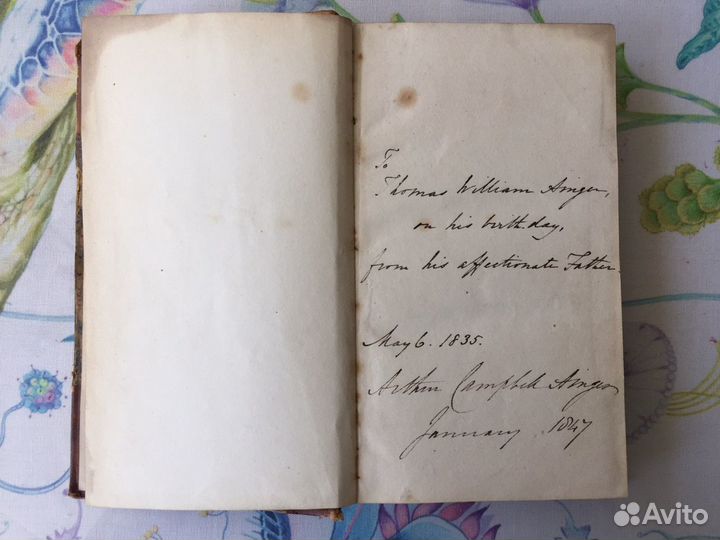 To
Thomas William Ainger,
on his birth day,
from his affectionate Father.
May 6. 1835.
Arthur Campbell Ainger
January 1847
Avito